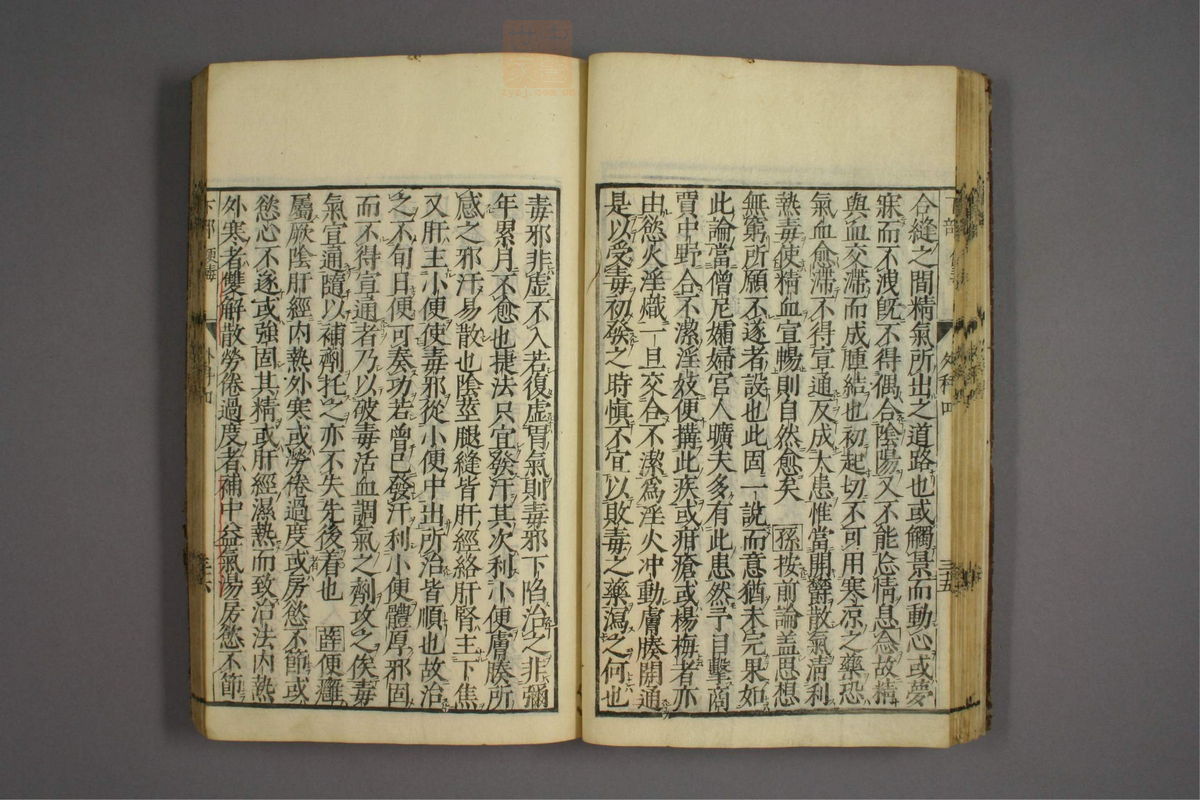 合縫之間精氣所出之道路也或觸景而動心或夢
寐而不洩旣不得偶合陰陽又不能忘情息念故精
與血交滯而成腫結也初起切不可用寒凉之藥恐
氣血愈滯不得宣通反成大患惟當開欝散氣淸利
熱毒使精血宣暢則自然愈矣 孫桉前論盖思想
無窮所願不遂者設也此固一說而意猶未完果如
此論當僧尼孀婦宮人曠夫多有此患然予目擊商
賈中野合不潔淫妓便搆此疾或疳瘡或楊梅者亦
由慾火淫熾一旦交合不潔爲淫火冲動膚腠開通
是以受毒初發之時愼不宜以敗毒之藥瀉之何也
外科四
三五
毒邪非虛不入若復虛胃氣則毒邪下陷治之非彌
年累月不愈也捷法只宜發汗其次利小便膚腠所
感之邪汗易散也陰莖腿縫皆肝經絡肝腎主下焦
又肝主小便使毒邪從小便中出所治皆順也故治
之不旬日便可奏功若曾已發汗利小便體厚邪固
而不得宣通者乃以破毒活血調氣之劑攻之俟毒
氣宜通隨以補劑托之亦不失先後着也 薛便癰
屬厥陰肝經內熱外寒或勞倦過度或房慾不節或
慾心不遂或強固其精或肝經濕熱而致治法內熱
外寒者雙解散勞倦過度者補中益氣湯房慾不節
下部